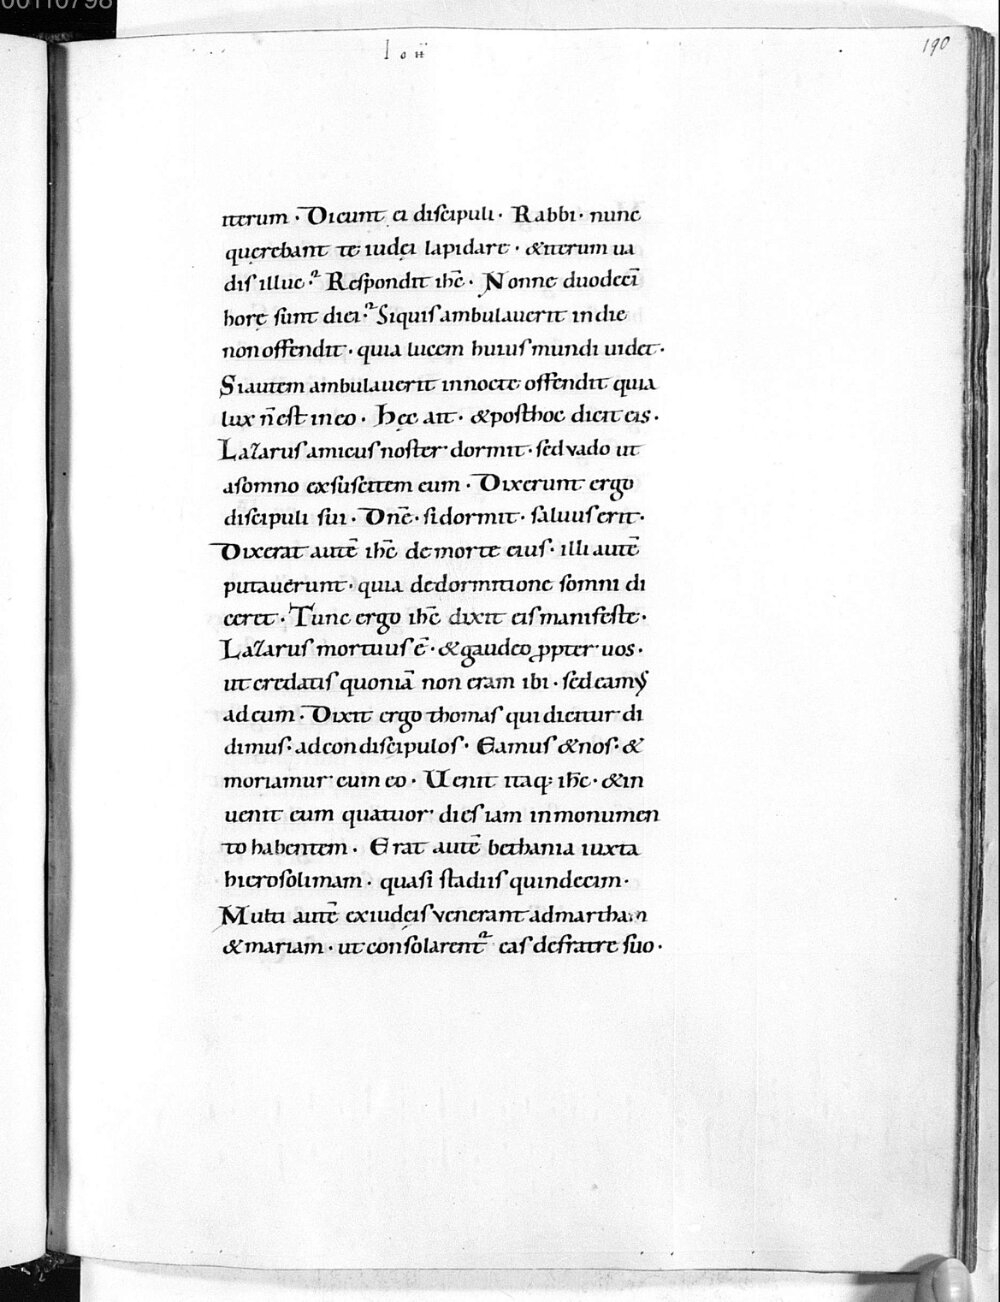 00110798
Ioħ
190
iterum · Dicunt ei discipuli · Rabbi · nunc
querebant te iudęi lapidare · & iterum ua
dis illuc · Respondit ihc̄ · Nonne duodecī
horę sunt diei · Siquis ambulauerit in die
non offendit · quia lucem huius mundi uidet ·
Si autem ambulauerit in nocte offendit quia
lux n̄ est in eo · Hęc ait · & post hoc dicit eis ·
Lazarus amicus noster dormit · sed vado ut
a somno exsuscitem eum · Dixerunt ergo
discipuli sui · Dnē · si dormit · saluus erit ·
Dixerat autē ihc̄ de morte eius · illi autē
putauerunt · quia de dormitione somni di
ceret · Tunc ergo ihc̄ dixit eis manifeste ·
Lazarus mortuus ē · & gaudeo ꝓpter uos ·
ut credatis quoniā non eram ibi · sed eamus
ad eum · Dixit ergo thomas qui dicitur di
dimus · ad condiscipulos · Eamus & nos · &
moriamur cum eo · Uenit itaq; ihc̄ · & in
uenit eum quatuor dies iam in monumen
to habentem · Erat autē bethania iuxta
hierosolimam · quasi stadiis quindecim ·
Multi autē ex iudęis venerant ad martham
& mariam · ut consolarent᷑ eas de fratre suo ·